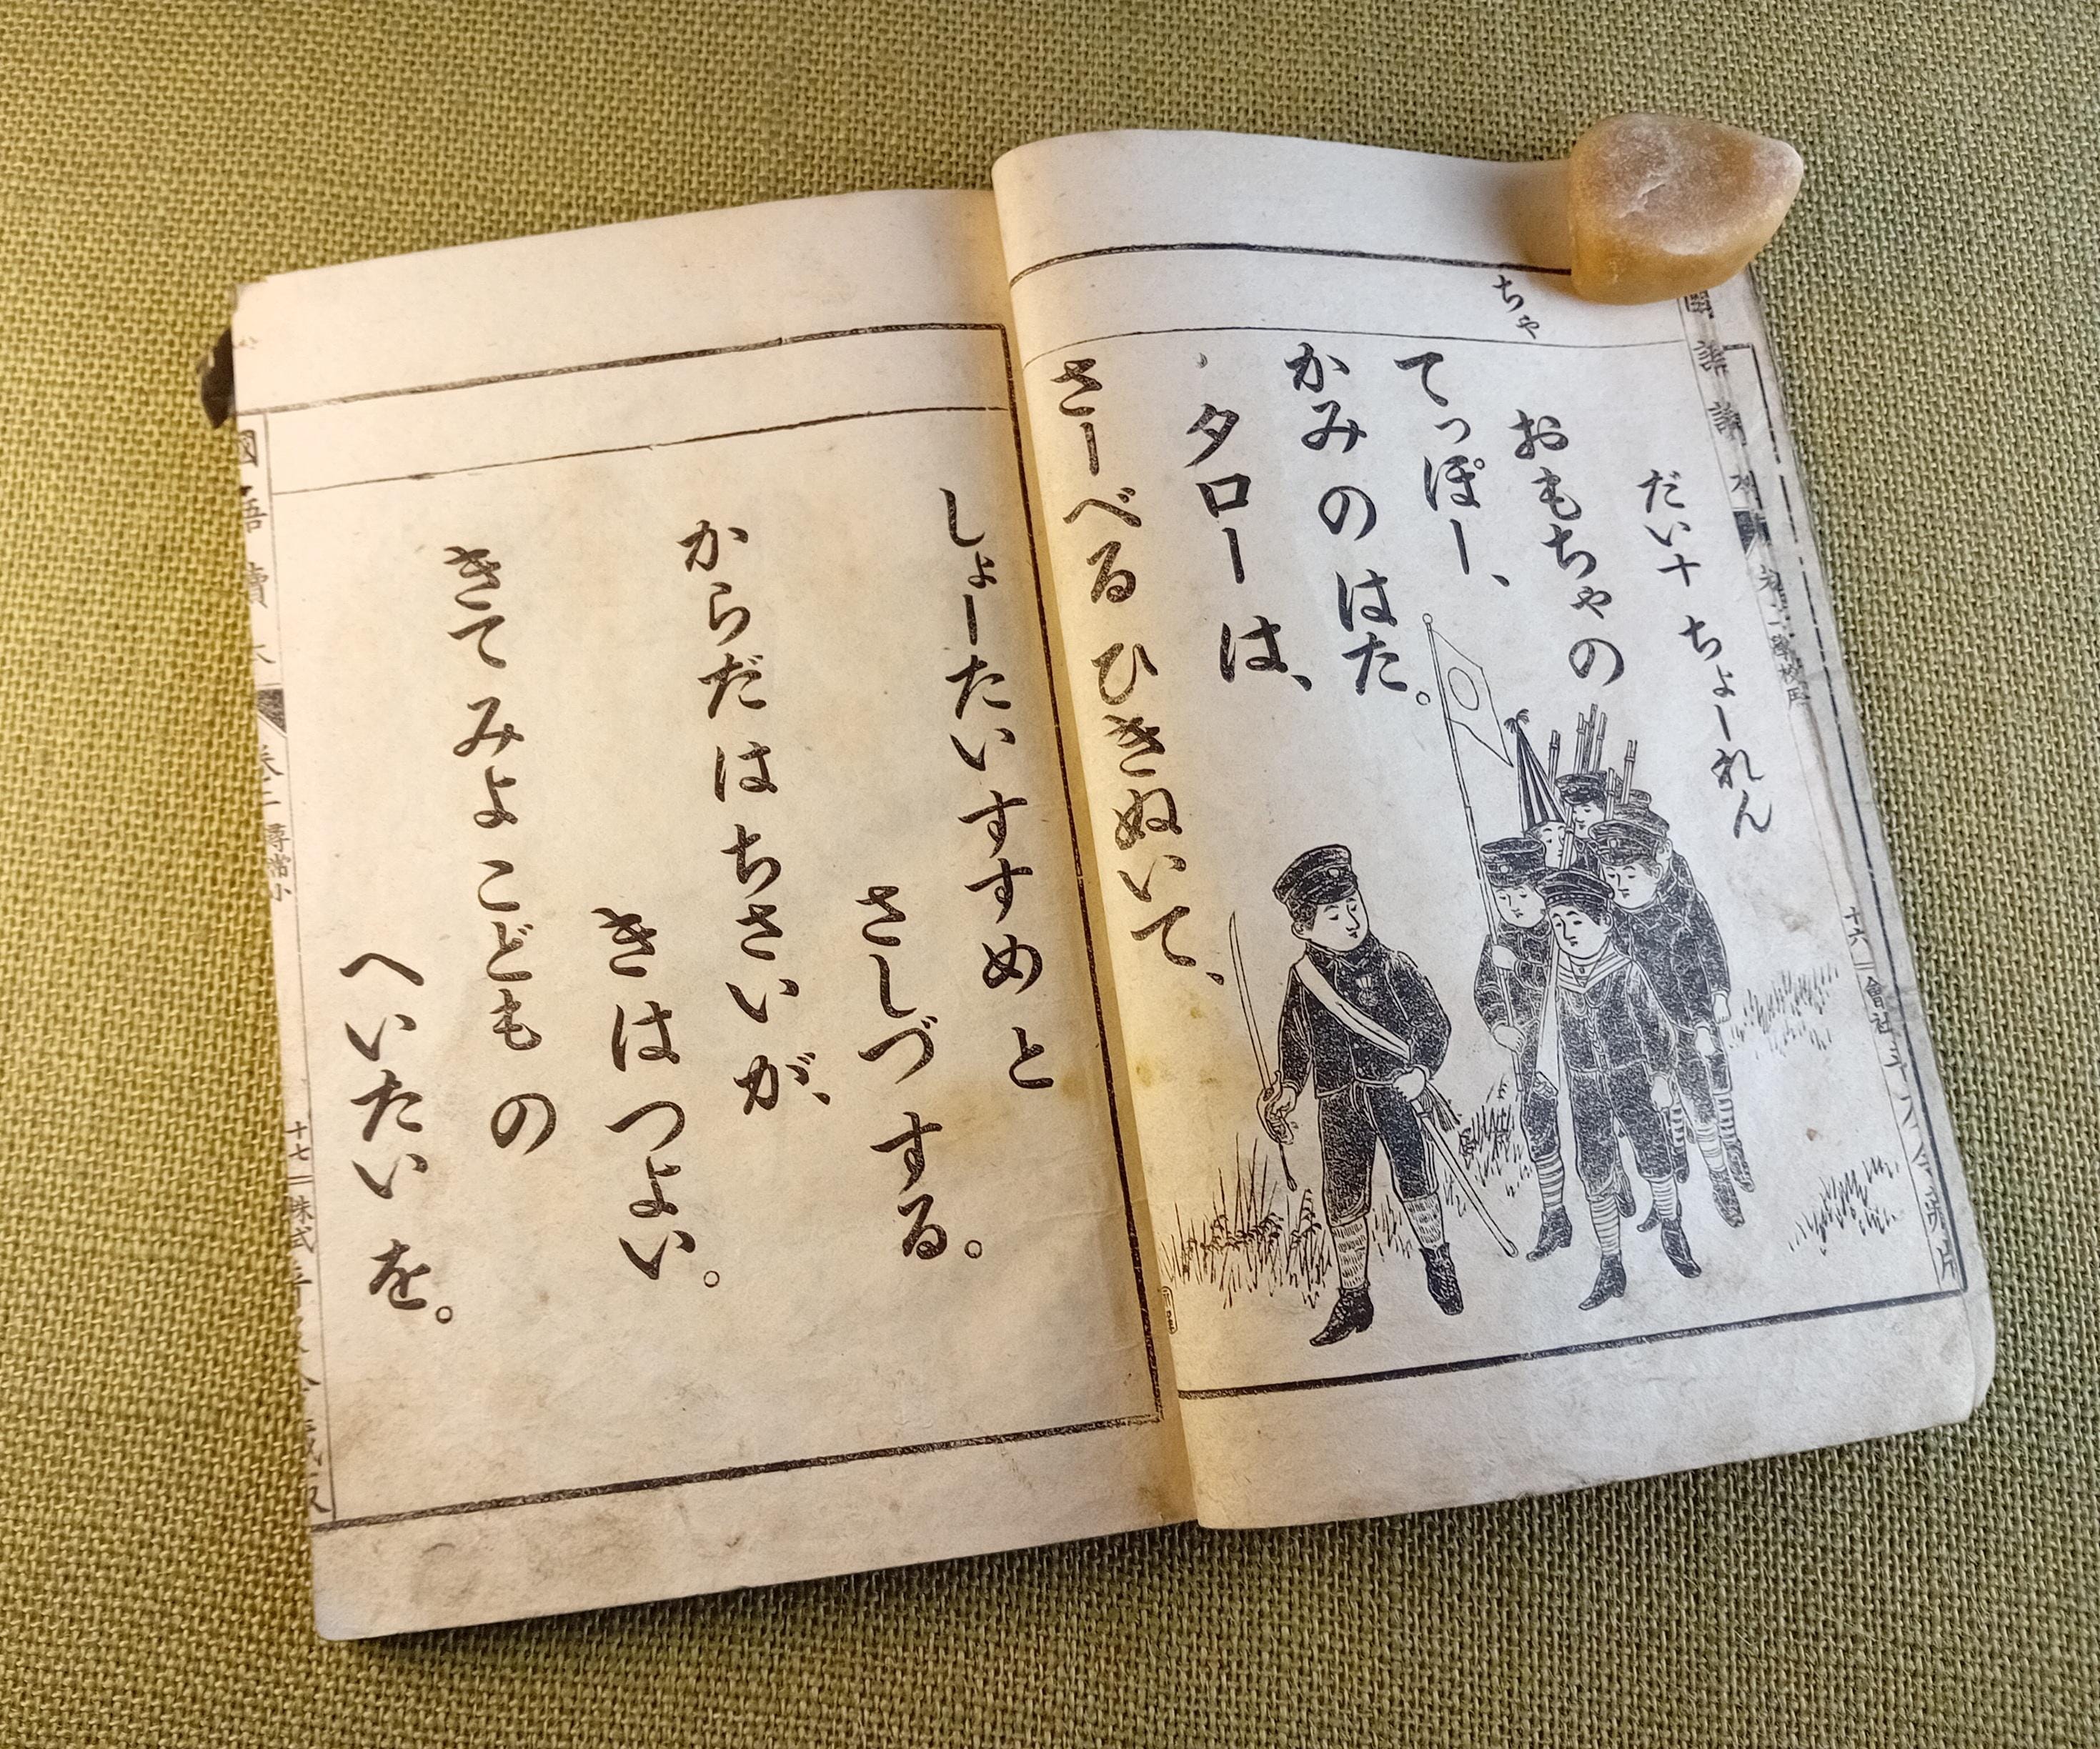 ちゃ
だい十 ちょーれん
おもちゃの
てっぽー、
かみ の はた。
タロー は、
さーべる ひきぬいて、
十六
會社
しょーたい すすめ と
さしづ する。
からだ は ちさい が、
き は つよい。
きて みよ こども の
へいたい を。
國語讀
卷二 尋常小
十七 株式